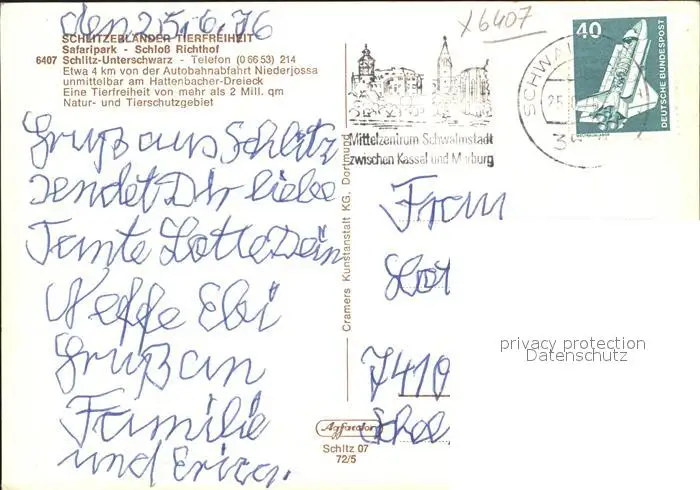 den 25.6.76
SCHLITZERLÄNDER TIERFREIHEIT
Safaripark - Schloß Richthof
6407 Schlitz-Unterschwarz - Telefon (0 66 53) 214
Etwa 4 km von der Autobahnabfahrt Niederjossa
unmittelbar am Hattenbacher-Dreieck
Eine Tierfreiheit von mehr als 2 Mill. qm
Natur- und Tierschutzgebiet
Gruß aus Schlitz
sendet Dir liebe
Tante Lotte Dein
Neffe Ebi
Gruß an
Familie
und Erica.
Cramers Kunstanstalt KG, Dortmund
Agfacolor
Schltz 07
72/5
x6407
Mittelzentrum Schwalmstadt
zwischen Kassel und Marburg
SCHWAL
25.
40
DEUTSCHE BUNDESPOST
Frau
Lot
7410
privacy protection
Datenschutz